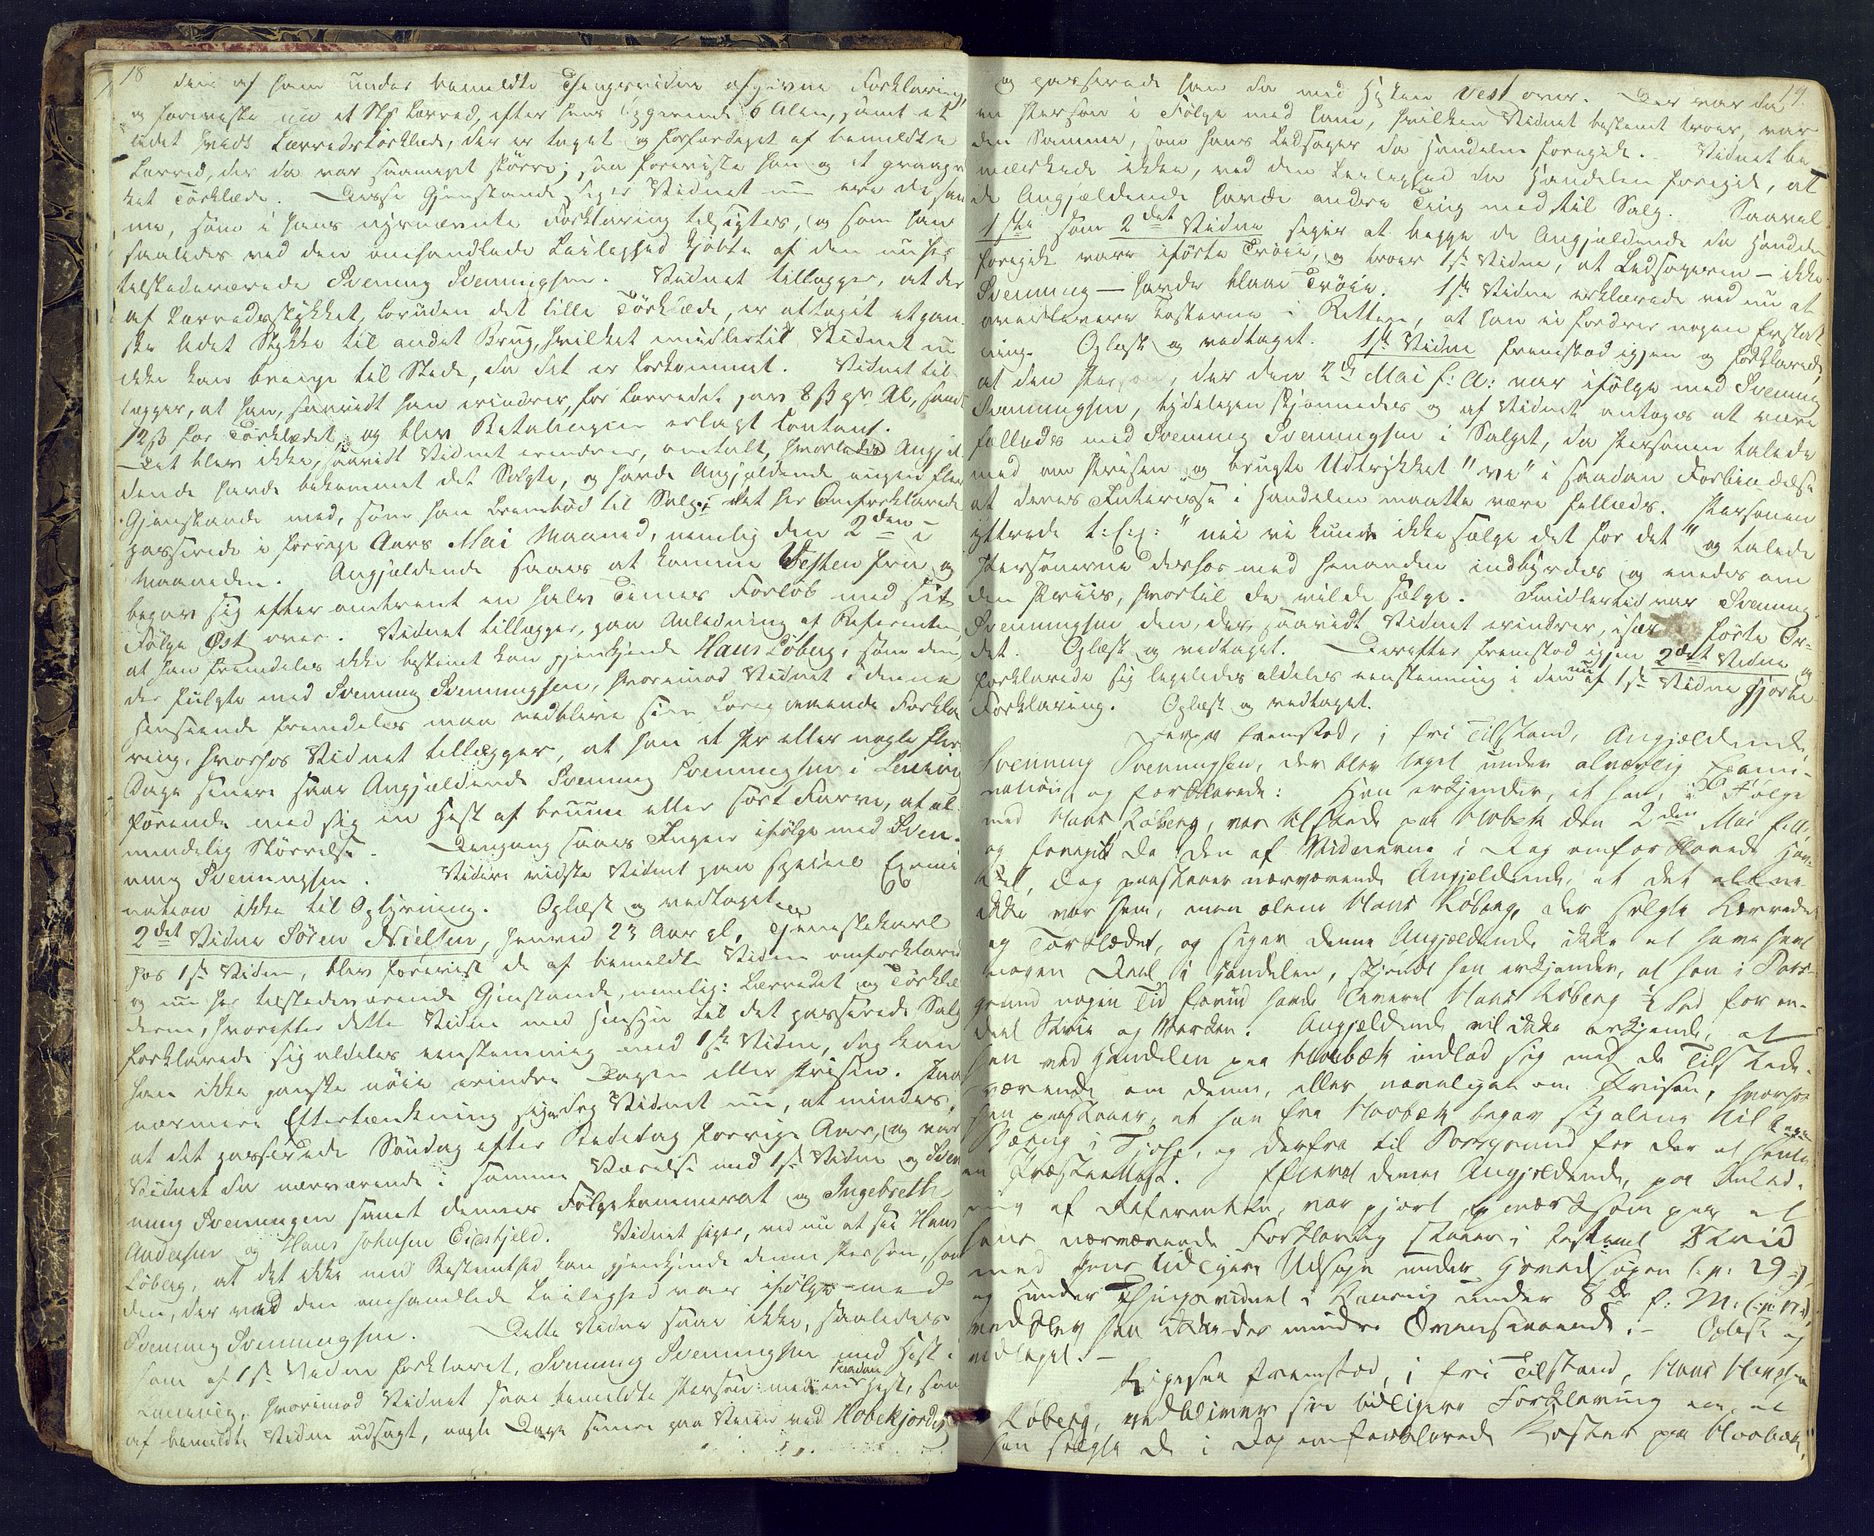 18
den af ham under bemeldte Thingsvidne afgivne Forklaring,
og foreviste nu et Stk Lærred, efter hans Opgivende 6 Alen, samt et
lidet hvidt Lærredstørklæde, der er taget og forfærdiget af bemeldte
Lærred, der da var saameget større; saa foreviste han og et graap
ket Tørklæde. Disse Gjenstande siger Vidnet nu ere de sam
me, som i hans nysnævnte Forklaring tilsigtes, og som han
saaledes ved den omhandlede Leilighed kjøbte af den nu her
tilstedeværende Svening Sveningsen. Vidnet tillægger, at der
af Lærredsstykket, foruden det lille Tørklæde, er aftaget et gan-
ske lidet Stykke til andet Brug, hvilket imidlertid Vidnet nu
ikke kan bringe til Stede, da det er forkommet. Vidnet til-
lægger, at han, saavidt han erindrer, for Lærredet gav 8 ß pr Al, samt
12 ß for Tørklædet, og blev Betalingen erlagt contant.
Det blev ikke, saavidt Vidnet erindrer, omtalt, hvorledes Angjel
dende havde bekommet det Solgte, og havde Angjældende ingen flere
Gjenstande med, som han frembød til Salg; det her Omforklarede
passerede i forrige Aars Mai Maaned, nemlig den 2den i
Maaneden. Angjældende saaes at komme Vesten fra og
begav sig efter omtrent en halv Times Forløb med sit
Følge Øst over. Vidnet tillægger, paa Anledning af Referenten,
at han fremdeles ikke bestemt kan gjenkjende Hans Løberg, som den,
der fulgte med Svening Sveningsen, hvorimod Vidnet i denne
Henseende fremdeles maa vedblive sin foregaaende Forkla
ring, hvorhos Vidnet tillægger, at han et Par eller nogle flere
Dage senere saae Angjældende Svening Sveningsen i
førende med sig en Hest af bruun eller sort Farve, af al-
mindelig Størrelse. Dengang saaes Ingen ifølge med Sven-
ning Sveningsen. Videre vidste Vidnet paa speciel Exami
nation ikke til Oplysning. Oplæst og vedtaget.
2det Vidne Sören Nielsen, henved 23 Aar gl, Tjenestekarl
hos 1ste Vidne, blev forevist de af bemeldte Vidne omforklarede
og nu her tilstedeværende Gjenstande, nemlig: Lærredet og Tørklæ
derne, hvorefter dette Vidne med Hensyn til det passerede Salg
forklarede sig aldeles eenstemmig med 1ste Vidne, dog kan
han ikke ganske nøie erindre Dagen eller Prisen. Paa
nærmere Eftertænkning siger dog Vidnet nu, at mindes,
at det passerede Søndag efter Bededag forrige Aar, og var
Vidnet da nærværende i samme Værelse med 1ste Vidne og Sven
ning Sveningsen samt dennes Følgekammerat og Ingebreth
Andersen og Hans Johnsen Eieskjeld. Vidnet siger, ved nu at see Hans
Løberg, at det ikke med Bestemthed kan gjenkjende denne Person, som
den, der ved den omhandlede Leilighed var ifølge med
Svening Sveningsen. Dette Vidne saae ikke, saaledes
som af 1ste Vidne forklaret, Svening Sveningsen med Hest i
hvorimod Vidnet saae bemeldte Person med en saadan Hest, som
af bemeldte Vidne udsagt, nogle Dage senere paa Veien ved Hobekjordet,
19.
og passerede han da med Hesten Vest over. Der var da
en Person i Følge med ham, hvilken Vidnet bestemt troer, var
den Samme, som hans Ledsager da Handelen foregik. Vidnet be-
mærkede ikke, ved den Leilighed da Handelen foregik, at
de Angjældende havde andre Ting med til Salg. Saavel
1ste som 2det Vidne siger at begge de Angjældende da Handelen
foregik vare iførte Trøie, og troer 1ste Vidne, at Ledsageren – ikke
Svenning – havde blaae Trøie. 1ste Vidne erklærede ved nu at
overlevere Kosterne i Retten, at han ei fordrer nogen Erstat
ning. Oplæst og vedtaget. 1ste Vidne fremstod igjen og forklarede,
at den Person, der den 2den Mai f: A: var ifølge med Svening
Sveningsen, tydeligen skjønnedes og af Vidnet antoges at være
fælleds med Svening Sveningsen i Salget, da Personen talede
med om Prisen og brugte Udtrykket "vi" i saadan Forbindelse
at deres Interesse i Handelen maatte være fælleds. Personen
yttrede t: Ex: "nei vi kunde ikke sælge det for det" og talede
Personerne derhos med hinanden indbyrdes og enedes om
den Priis, hvortil de vilde sælge. Imidlertid var Svening
Sveningsen den, der, saavidt Vidnet erindrer, især førte Or-
det. Oplæst og vedtaget. Derefter fremstod igjen 2det Vidne og
forklarede sig ligeledes aldeles eenstemmig i den nu af 1ste Vidne gjorte
Forklaring. Oplæst og vedtaget.
Derpaa fremstod, i fri Tilstand, Angjældende
Svenning Sveningsen, der blev taget under alvorlig Exami-
nation og forklarede: Han erkjender, at han, i Følge
med Hans Løberg, var tilstede paa Hobek den 2den Mai f. A.
og foregik da den af Vidnerne i Dag omforklarede Han-
del, dog paastaaer nærværende Angjældende, at det aldeles
ikke var ham, men alene Hans Løberg, der solgte Lærredet
og Tørklædet, og siger denne Angjældende ikke at have havt
nogen Deel i Handelen, skjøndt han erkjender, at han i Pors-
grund nogen Tid forud havde leveret Hans Løberg
deel Strie og Verken. Angjældende vil ikke erkjende, at
han ved Handelen paa Hobæk indlod sig med de Tilstede-
værende om denne, eller navnligen om Prisen, hvorhos
han paastaaer, at han fra Hobæk begav sig alene til
Bærug i Tjose, og derfra til Porsgrund for der at hente
en Præstehest. Efterat denne Angjældende, paa Anled-
ning af Referenten, var gjort opmærksom paa at
hans nærværende Forklaring staaer i bestemt Strid
med hans tidligere Udsagn under Hovedsagen (: p: 29 :),
og under Thingsvidnet i Laurvig under 8de f: M: (: p: 17 :),
vedblev han den desmindre Ovenstaaende. – Oplæst og
vedtaget. –
Ligesaa fremstod, i fri Tilstand, Hans Hansen
Løberg, vedbliver sin tidligere Forklaring om at
han solgte de i Dag omforklarede Koster paa Hobæk,